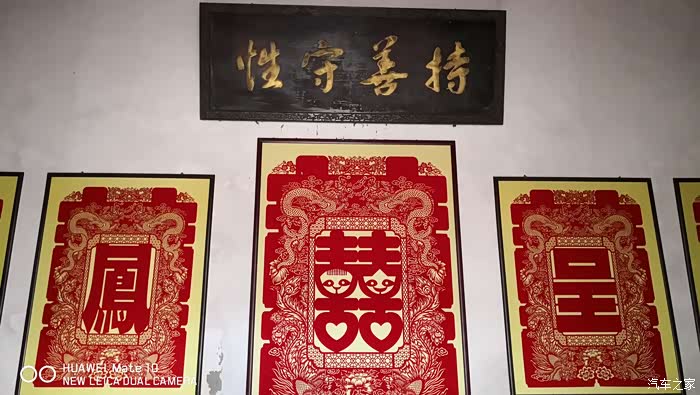 持善守性
鳳 囍 呈
HUAWEI Mate 10
NEW LEICA DUAL CAMERA
汽车之家